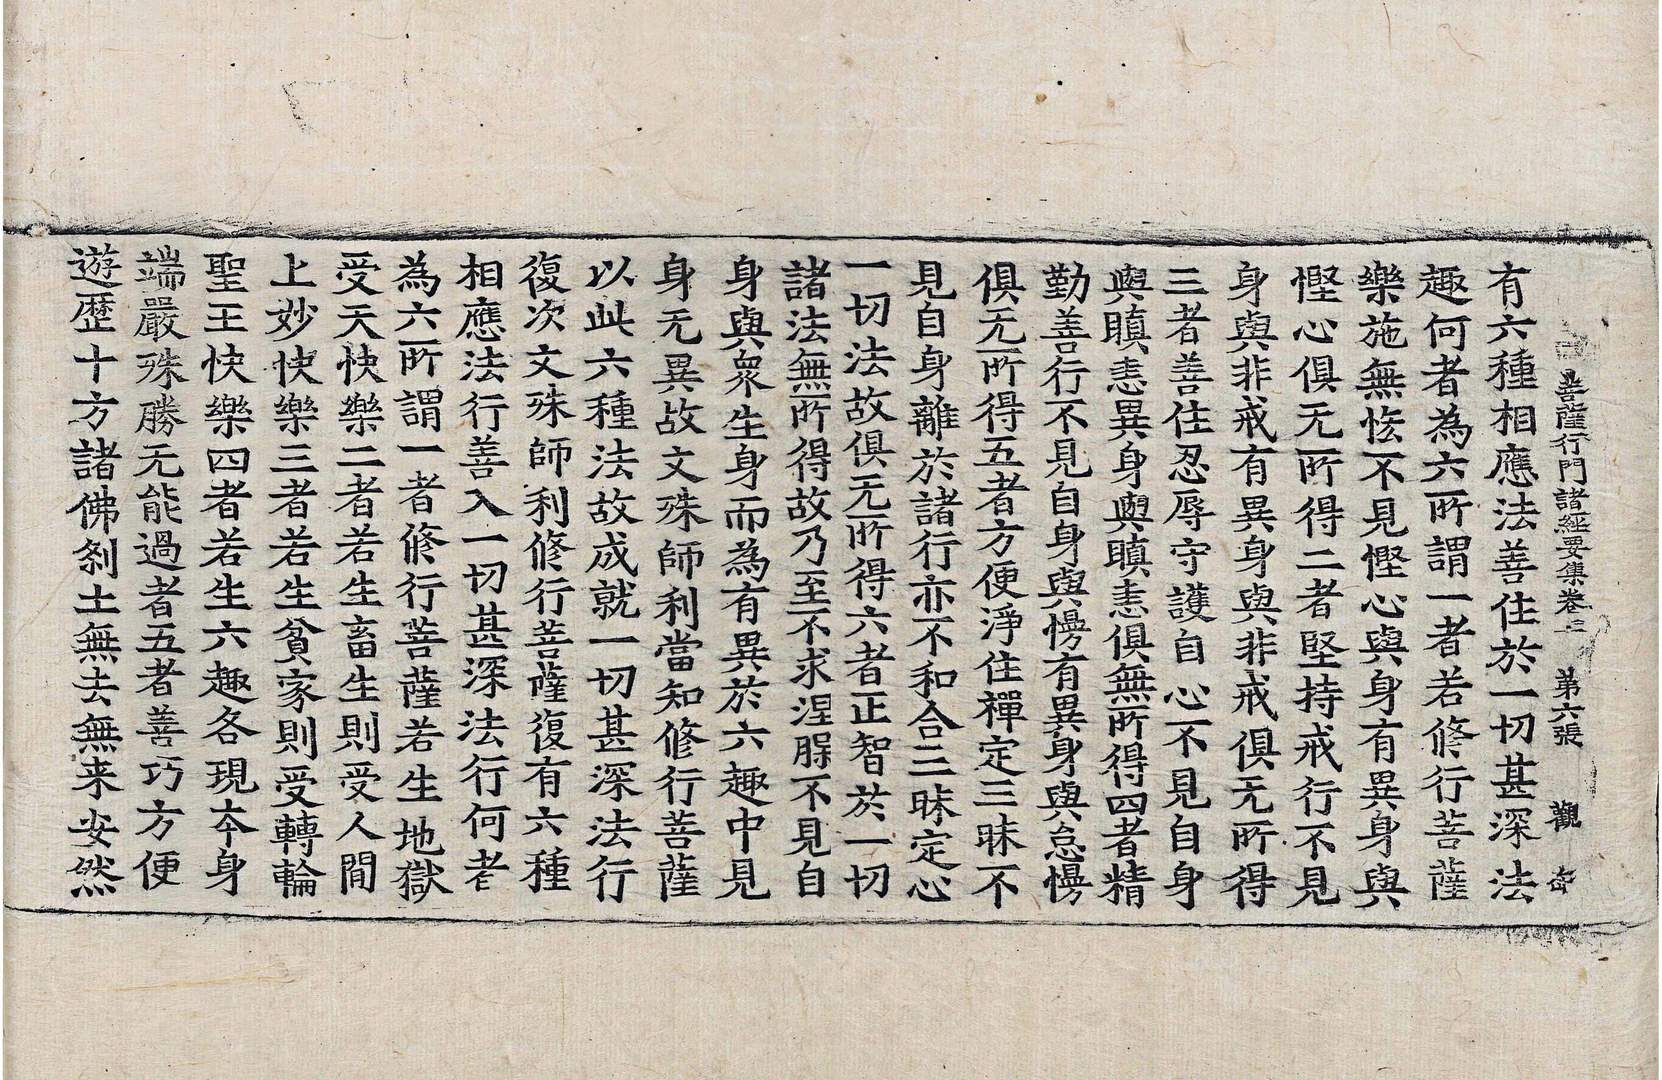 菩薩行門諸經要集卷上 第六張 觀
有六種相應法善住於一切甚深法
趣何者為六所謂一者若修行菩薩
樂施無悋不見慳心與身有異身與
慳心俱无所得二者堅持戒行不見
身與非戒有異身與非戒俱无所得
三者善住忍辱守護自心不見自身
與瞋恚異身與瞋恚俱無所得四者精
勤善行不見自身與慢有異身與怠慢
俱无所得五者方便淨住禪定三昧不
見自身離於諸行亦不和合三昧定心
一切法故俱无所得六者正智於一切
諸法無所得故乃至不求涅槃不見自
身與衆生身而為有異於六趣中見
身无異故文殊師利當知修行菩薩
以此六種法故成就一切甚深法行
復次文殊師利修行菩薩復有六種
相應法行善入一切甚深法行何者
為六所謂一者修行菩薩若生地獄
受天快樂二者若生畜生則受人間
上妙快樂三者若生貧家則受轉輪
聖王快樂四者若生六趣各現本身
端嚴殊勝无能過者五者善巧方便
遊歷十方諸佛剎土無去無来安然